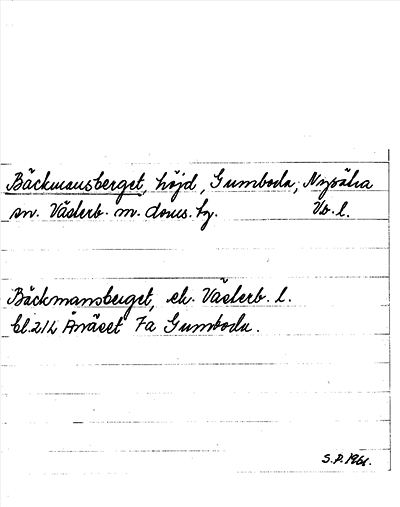 Bäckmansberget, höjd, Gumboda, Nysätra
sn. Västerb. m. doms. hg. Vb. l.
Bäckmansberget, ek. Västerb. l.
bl. 21h Ånäset 7a Gumboda.
S.P. 1961.